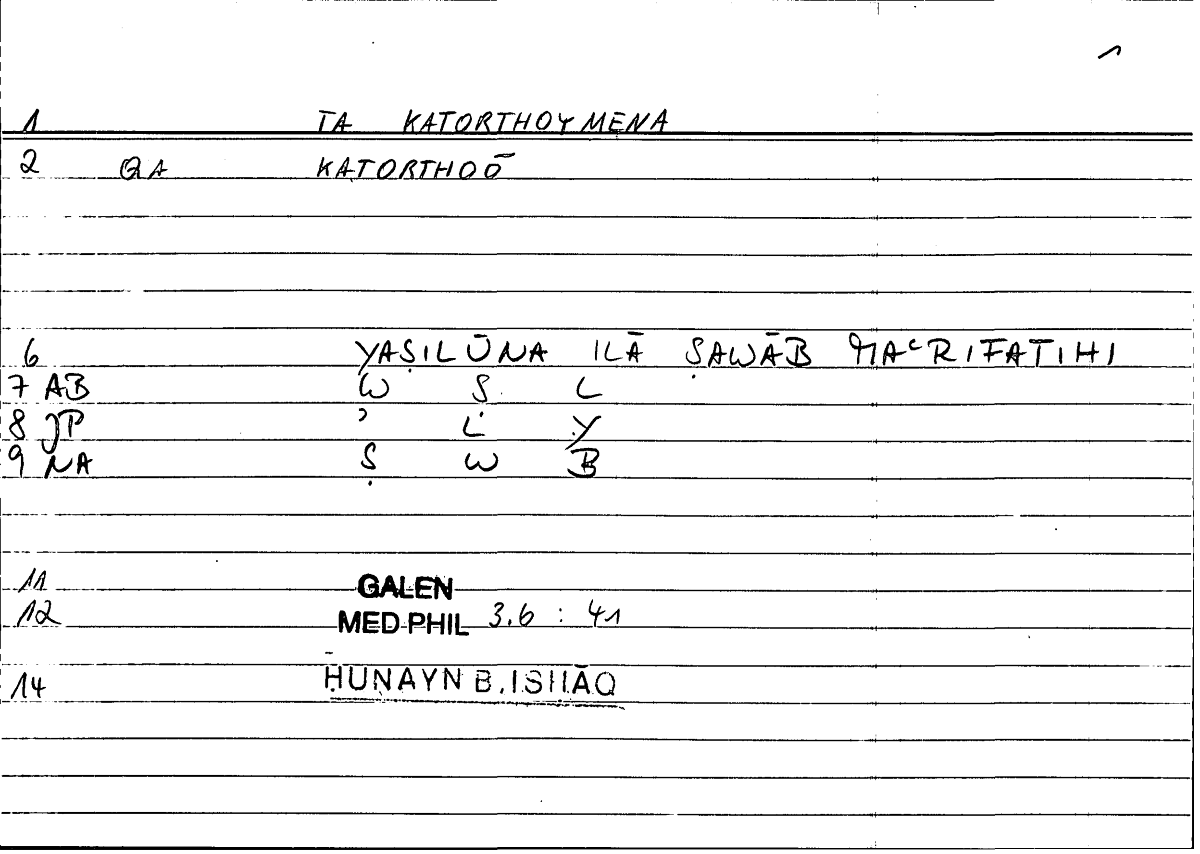 1
1 TA KATORTHOYMENA
2 QA KATORTHOŌ
6 YAṢILŪNA ILĀ ṢAWĀB MAʿRIFATIHI
7 AB W Ṣ L
8 JP ʾ L Y
9 NA Ṣ W B
11 GALEN
12 MED PHIL 3.6 : 41
14 ḤUNAYN B. ISḤĀQ